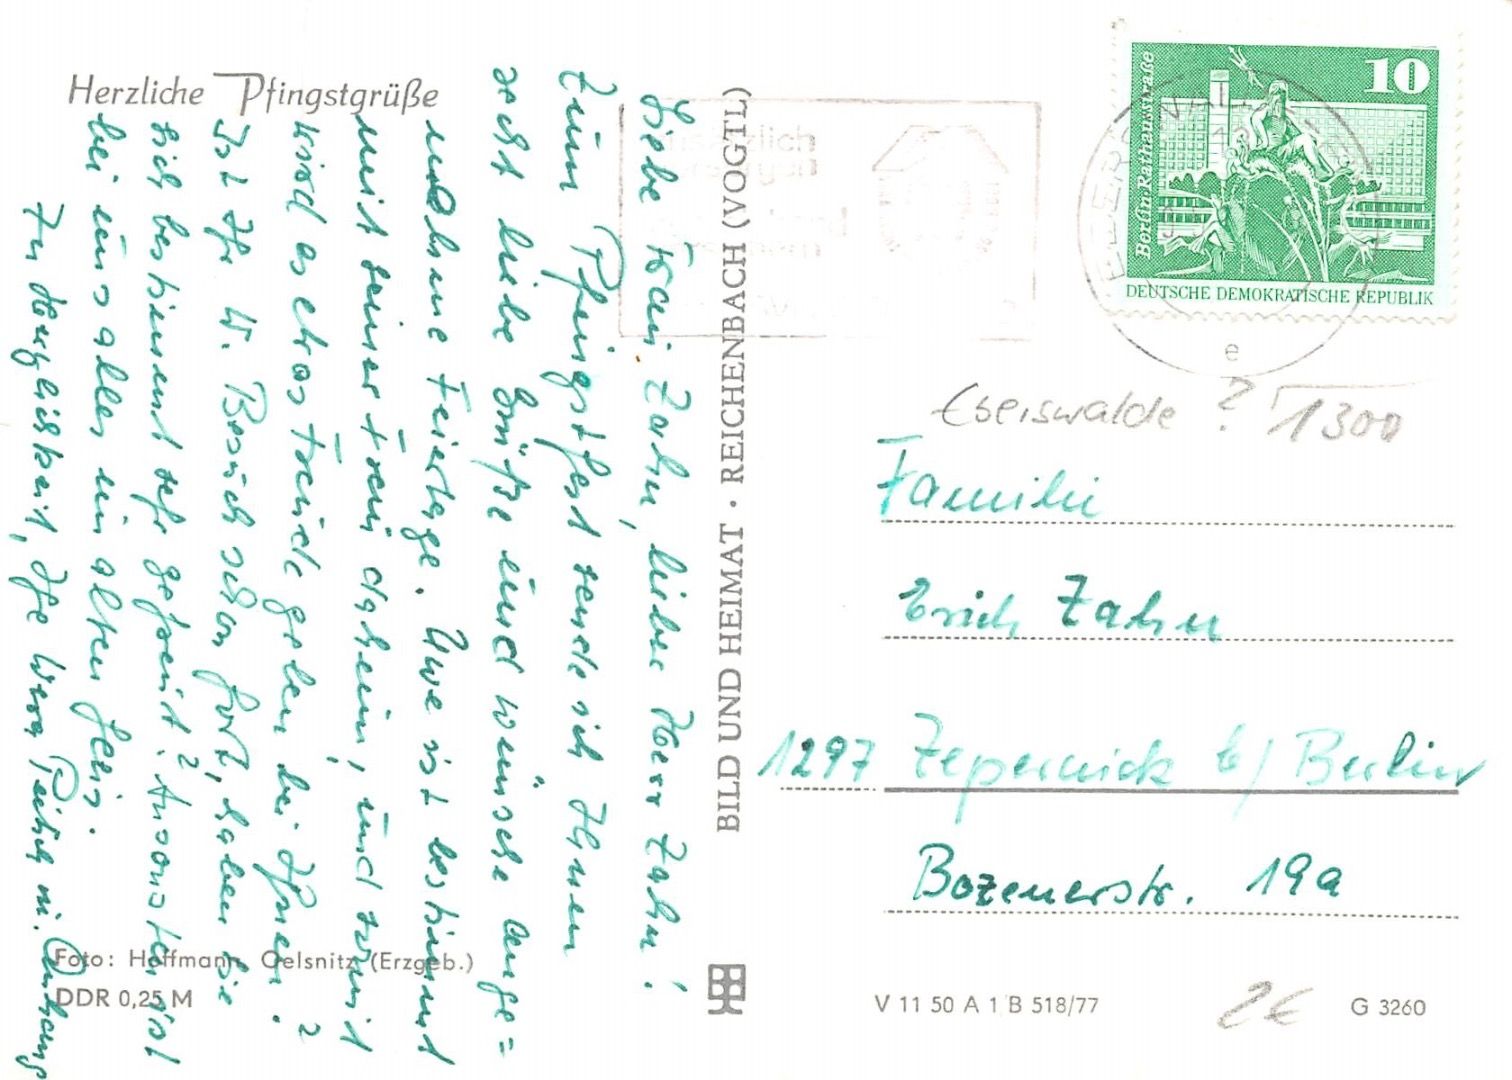 Herzliche Pfingstgrüße
Liebe Frau Zahn, lieber Herr Zahn!
Zum Pfingstfest sende ich Ihnen
recht liebe Grüße und wünsche ange=
nehme Feiertage. Uwe ist bestimmt
mit seiner Frau daheim, und somit
wird es etwas Freude geben bei Ihnen.
Ist Ihr W. Besuch schon fort, haben Sie
sich bestimmt sehr gefreut? Ansonsten ist
bei uns alles im alten Gleis.
In Herzlichkeit, Ihre Wera m. Anhang
Foto: Hoffmann, Oelsnitz (Erzgeb.)
DDR 0,25 M
BILD UND HEIMAT · REICHENBACH (VOGTL)
10
Berlin Rathausstraße
DEUTSCHE DEMOKRATISCHE REPUBLIK
e
Eberswalde ? 1300
Familie
Erich Zahn
1297 Zepernick b/ Berlin
Bozenerstr. 19a
V 11 50 A 1 B 518/77
2€
G 3260